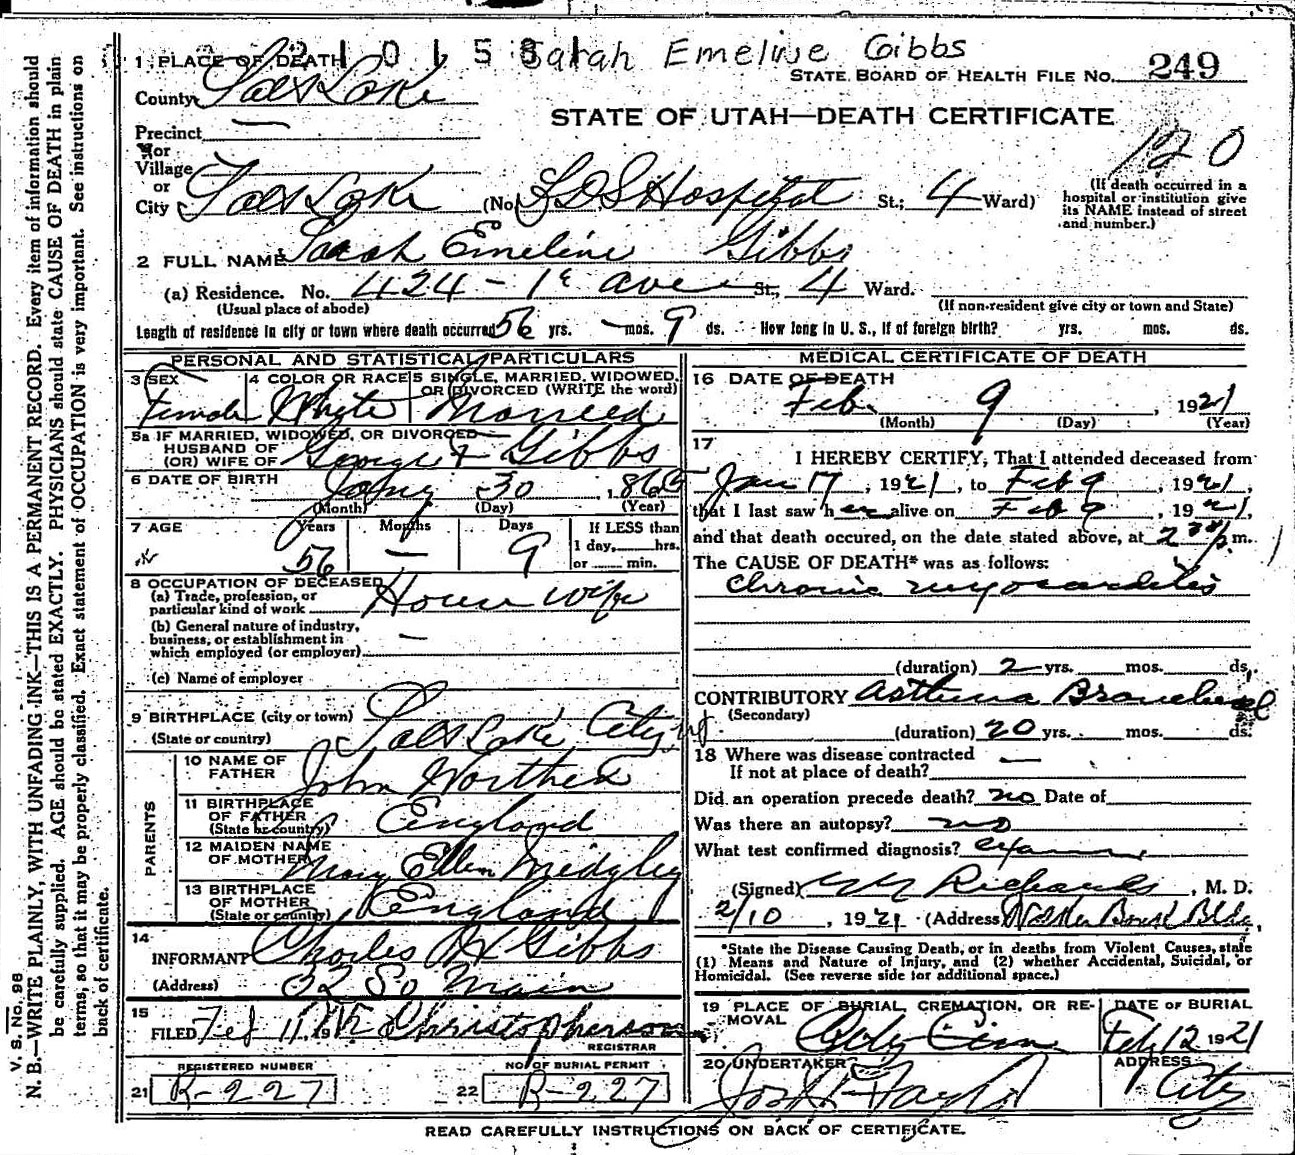 2101581 Sarah Emeline Gibbs
1 PLACE OF DEATH
STATE BOARD OF HEALTH FILE NO. 249
County Salt Lake
STATE OF UTAH—DEATH CERTIFICATE
120
Precinct —
or
Village
or
City Salt Lake (No. LDS Hospital St.; 4 Ward)
(If death occurred in a hospital or institution give its NAME instead of street and number.)
2 FULL NAME Sarah Emeline Gibbs
(a) Residence. No. 424 - 1st ave St., 4 Ward.
(Usual place of abode) (If non-resident give city or town and State)
Length of residence in city or town where death occurred 56 yrs. — mos. 9 ds. How long in U. S., if of foreign birth? yrs. mos. ds.
PERSONAL AND STATISTICAL PARTICULARS
3 SEX
Female
4 COLOR OR RACE
White
5 SINGLE, MARRIED, WIDOWED, OR DIVORCED (WRITE the word)
Married
5a IF MARRIED, WIDOWED, OR DIVORCED
HUSBAND OF
(OR) WIFE OF George F Gibbs
6 DATE OF BIRTH Jany 30, 1865
(Month) (Day) (Year)
7 AGE Years Months Days If LESS than
1 day, hrs.
or min.
56 — 9
8 OCCUPATION OF DECEASED
(a) Trade, profession, or
particular kind of work House wife
(b) General nature of industry,
business, or establishment in
which employed (or employer) —
(c) Name of employer
9 BIRTHPLACE (city or town)
(State or country) Salt Lake City, Ut
PARENTS
10 NAME OF
FATHER John Worthen
11 BIRTHPLACE
OF FATHER
(State or country) England
12 MAIDEN NAME
OF MOTHER Mary Ellen Midgley
13 BIRTHPLACE
OF MOTHER
(State or country) England
14
INFORMANT Charles H Gibbs
(Address) So Main
15
FILED Feb 11, Christopherson
REGISTRAR
REGISTERED NUMBER
21 R-227
NO. OF BURIAL PERMIT
22 R-227
MEDICAL CERTIFICATE OF DEATH
16 DATE OF DEATH
Feb. 9, 1921
(Month) (Day) (Year)
17
I HEREBY CERTIFY, That I attended deceased from
Jan 17, 1921, to Feb 9, 1921,
that I last saw her alive on Feb 9, 1921,
and that death occured, on the date stated above, at 2 30 p m.
The CAUSE OF DEATH* was as follows:
Chronic myocarditis
(duration) 2 yrs. mos. ds.
CONTRIBUTORY Asthma Bronchial
(Secondary)
(duration) 20 yrs. mos. ds.
18 Where was disease contracted
If not at place of death? —
Did an operation precede death? no Date of
Was there an autopsy? no
What test confirmed diagnosis? exam
(Signed) Richards, M. D.
2/10, 1921 (Address) Walker Bank Bldg.
*State the Disease Causing Death, or in deaths from Violent Causes, state
(1) Means and Nature of Injury, and (2) whether Accidental, Suicidal, or
Homicidal. (See reverse side for additional space.)
19 PLACE OF BURIAL, CREMATION, OR RE-
MOVAL City Cem
DATE OF BURIAL
Feb 12 1921
20 UNDERTAKER
Jos Wm Taylor
ADDRESS
City
READ CAREFULLY INSTRUCTIONS ON BACK OF CERTIFICATE.
V. S. No. 98
N. B.—WRITE PLAINLY, WITH UNFADING INK—THIS IS A PERMANENT RECORD. Every item of information should
be carefully supplied. AGE should be stated EXACTLY. PHYSICIANS should state CAUSE OF DEATH in plain
terms, so that it may be properly classified. Exact statement of OCCUPATION is very important. See instructions on
back of certificate.